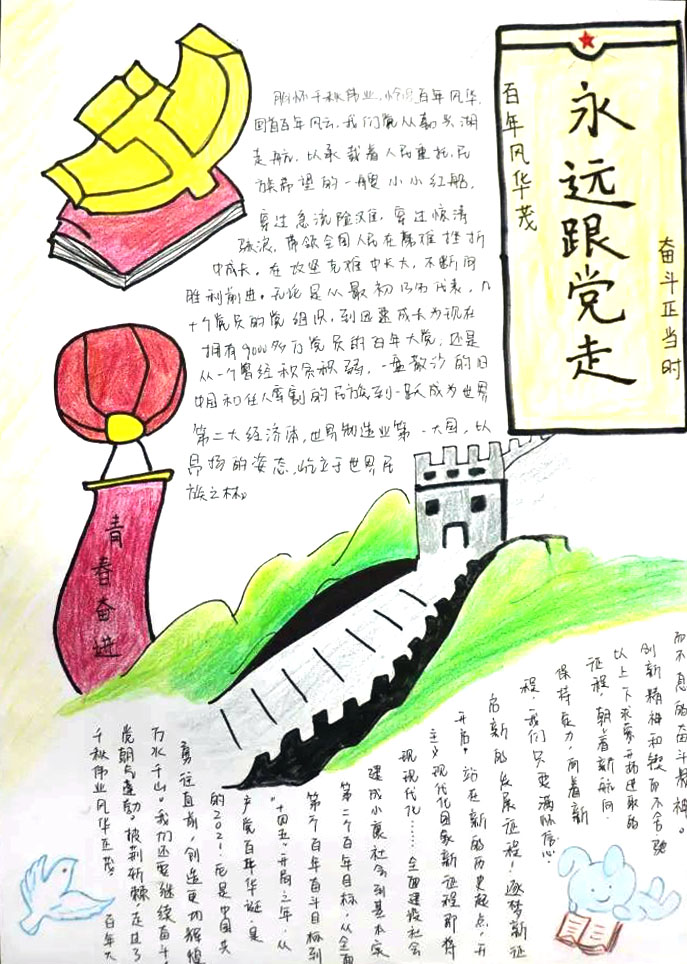 永远跟党走
百年风华茂
奋斗正当时
胸怀千秋伟业,恰是百年风华.
回首百年风云,我们党从嘉兴湖
走航,以承载着人民重托,民
族希望的一艘小小红船,
穿过急流险滩,穿过惊涛
骇浪,带领全国人民在磨难挫折
中成长,在攻坚克难中长大,不断向
胜利前进。无论是从最初13名代表,几
十个党员的党组织,到迅速成长为现在
拥有9000多万党员的百年大党,还是
从一个曾经积贫积弱,一盘散沙的旧
中国和任人宰割的民族到一跃成为世界
第二大经济体,世界制造业第一大国,以
昂扬的姿态,屹立于世界民
族之林。
青春奋进
百年大
党朝气蓬勃。披荆斩棘走过了
千秋伟业风华正茂。
万水千山。我们还要继续奋斗
勇往直前,创造更加辉煌
的2021.它是中国共
产党百年华诞,是
"十四五"开局之年,从
第一个百年奋斗目标到
第二个百年目标,从全面
建成小康社会到基本实
现现代化……全面建设社会
主义现代化国家新征程即将
开启。站在新的历史起点,开
启新的发展征程!逐梦新征
程,我们只要满怀信心
保持定力,向着新
征程,朝着新航向,
以上下求索开拓进取的
创新精神和锲而不舍驰
而不息的奋斗精神。